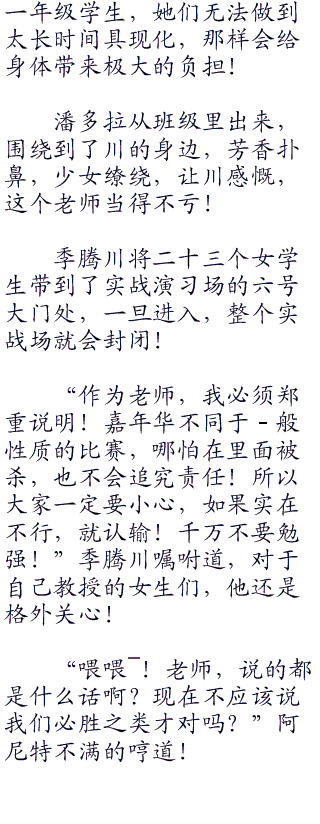 一年级学生，她们无法做到
太长时间具现化，那样会给
身体带来极大的负担！
潘多拉从班级里出来，
围绕到了川的身边，芳香扑
鼻，少女缭绕，让川感慨，
这个老师当得不亏！
季腾川将二十三个女学
生带到了实战演习场的六号
大门处，一旦进入，整个实
战场就会封闭！
“作为老师，我必须郑
重说明！嘉年华不同于－般
性质的比赛，哪怕在里面被
杀，也不会追究责任！所以
大家一定要小心，如果实在
不行，就认输！千万不要勉
强！”季腾川嘱咐道，对于
自己教授的女生们，他还是
格外关心！
“喂喂‾！老师，说的都
是什么话啊？现在不应该说
我们必胜之类才对吗？”阿
尼特不满的哼道！